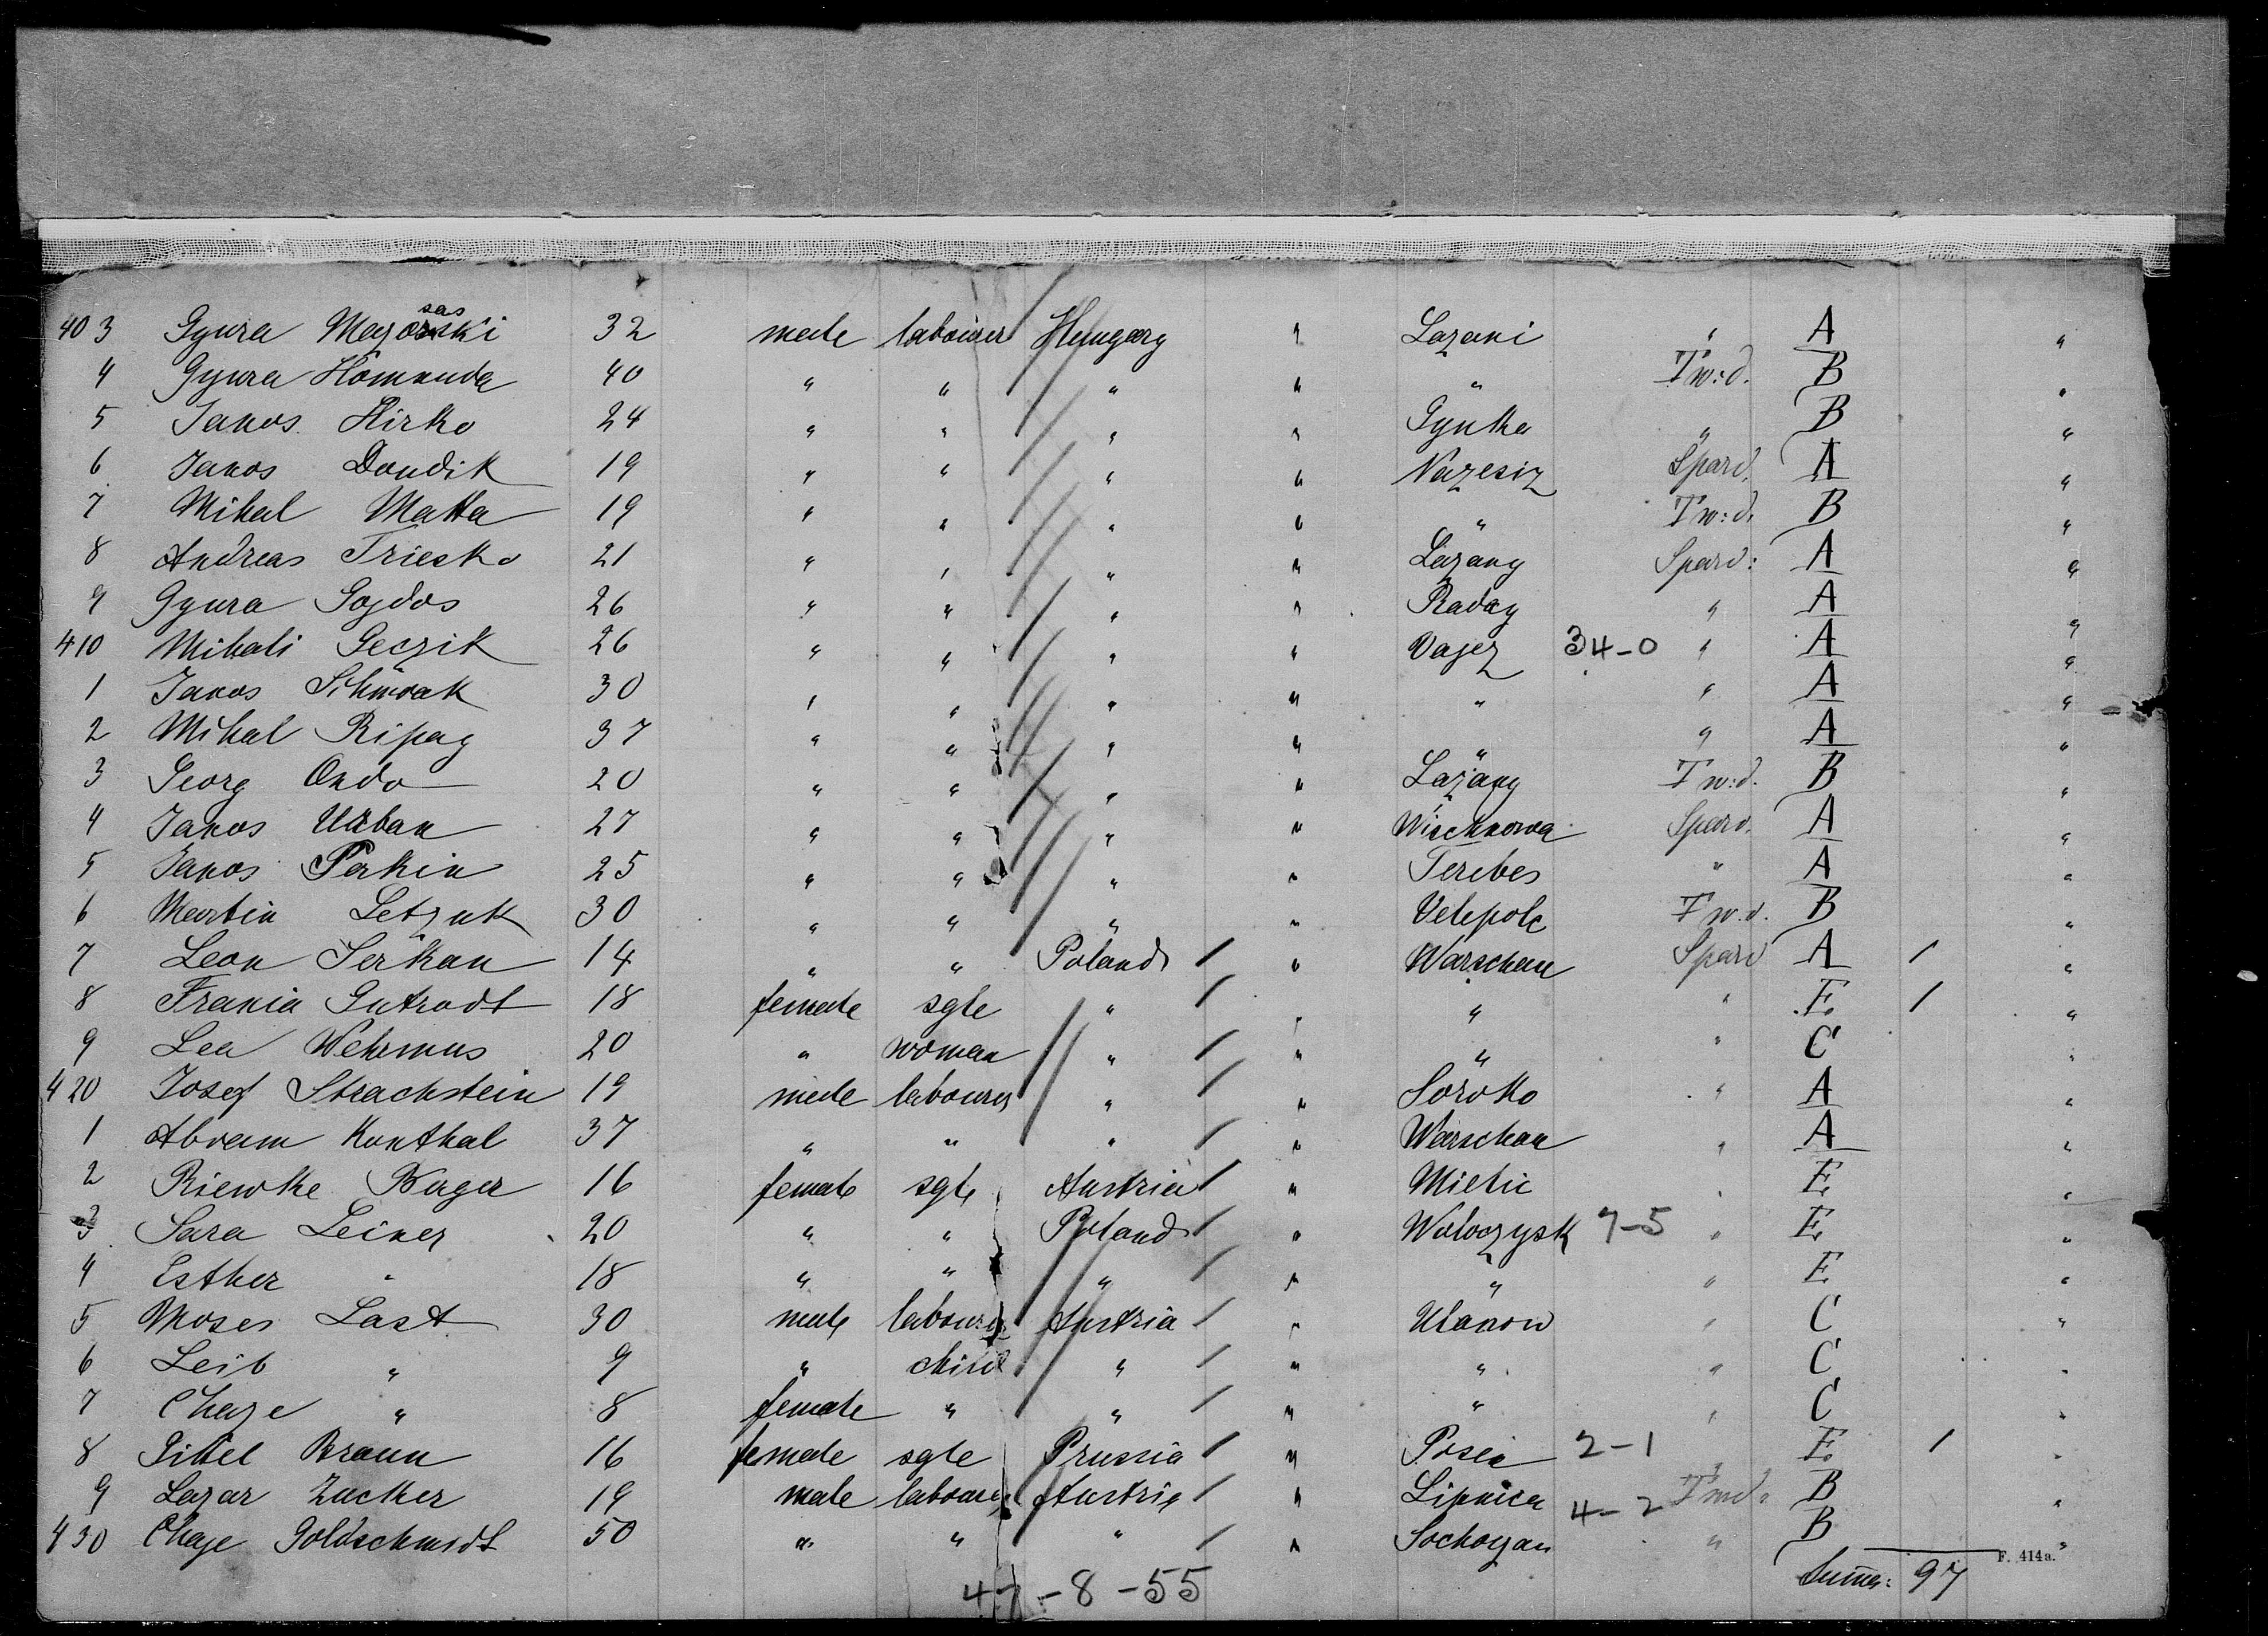 403 Gyura Magorski sas 32 male labourer Hungary " Lazani " A "
4 Gyura Homanda 40 " " " " " Tw:d. B "
5 Janos Hirko 24 " " " " Gynka " B "
6 Janos Dondik 19 " " " " Nazesiz Spard. A "
7 Mihal Matta 19 " " " " " Tw:d. B "
8 Andreas Triesko 21 " " " " Lazany Spard: A "
9 Gyura Gojdos 26 " " " " Raday " A "
410 Mihali Geczik 26 " " " " Vajez 34-0 " A "
1 Janos 30 " " " " " " A "
2 Mihal Ripay 37 " " " " " " A "
3 Georg Ondo 20 " " " " Lazany Tw:d. B "
4 Janos Urban 27 " " " " Wischnowa Spard. A "
5 Janos Perkin 25 " " " " Terebes " A "
6 Martin Letznk 30 " " " " Velepolc Tw.d. B "
7 Leon Serkan 14 " " Poland / " Warschau Spard A / "
8 Frania Gutrodt 18 female sgle " / " " " E. / "
9 Lea Wehrmus 20 " woman " / " " " C "
420 Josef Strachstein 19 male labourer " / " Soroko " A "
1 Abram Konthal 37 " " " / " Warschau " A "
2 Riewke Berger 16 female sgle Austria / " Mielic " E "
3 Sara Leiner 20 " " Poland / " Woloczysk 7-5 " E "
4 Esther " 18 " " " / " " " E "
5 Moses Last 30 male labourer Austria / " Ulanow " C "
6 Leib " 9 " child " / " " " C "
7 Chaze " 8 female " " / " " " C "
8 Gittel Braun 16 female sgle Prussia / " Posen 2-1 " E. / "
9 Lazar Zucker 19 male labourer Austria / " Lipnica 4-2 Twd. B "
430 Chaje Goldschmidt 50 " " " / " Sochozan " B "
47-8-55 Summa: 97 F. 414a.